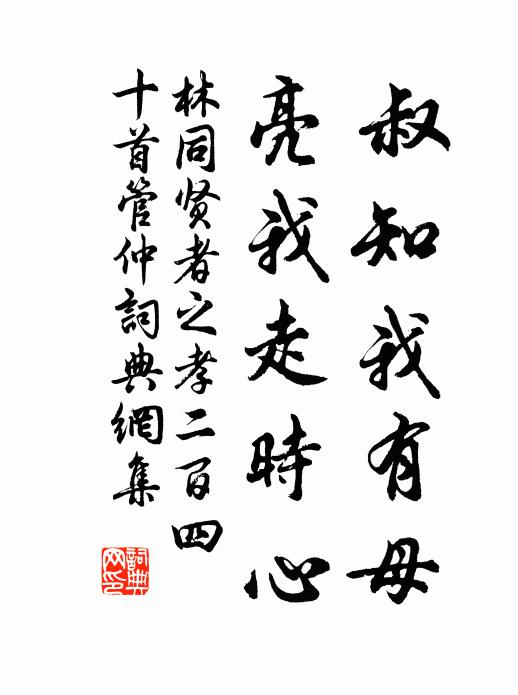 叔知我有母
亮我走時心
林同贤者之孝二百四
十首管仲詞典網集
詞典网印